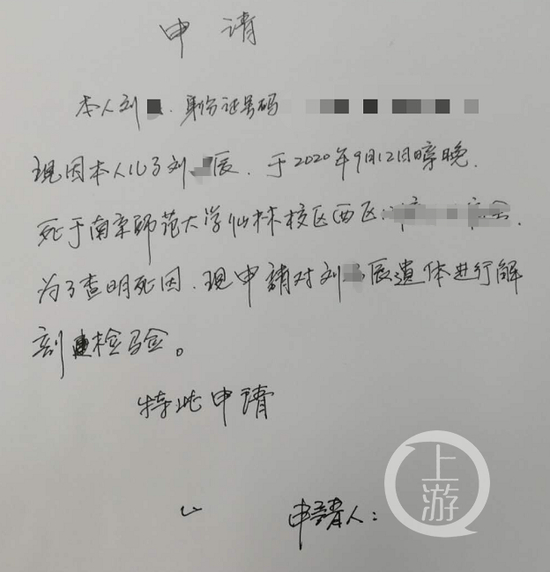 申请
本人刘 . 身份证号码
现因本人儿子刘 辰. 于2020年9月12日晚.
死于南京师范大学仙林校区西区
为了查明死因. 现申請对刘 辰遗体进行解
刻 检验。
特此申请
申請人:
上游